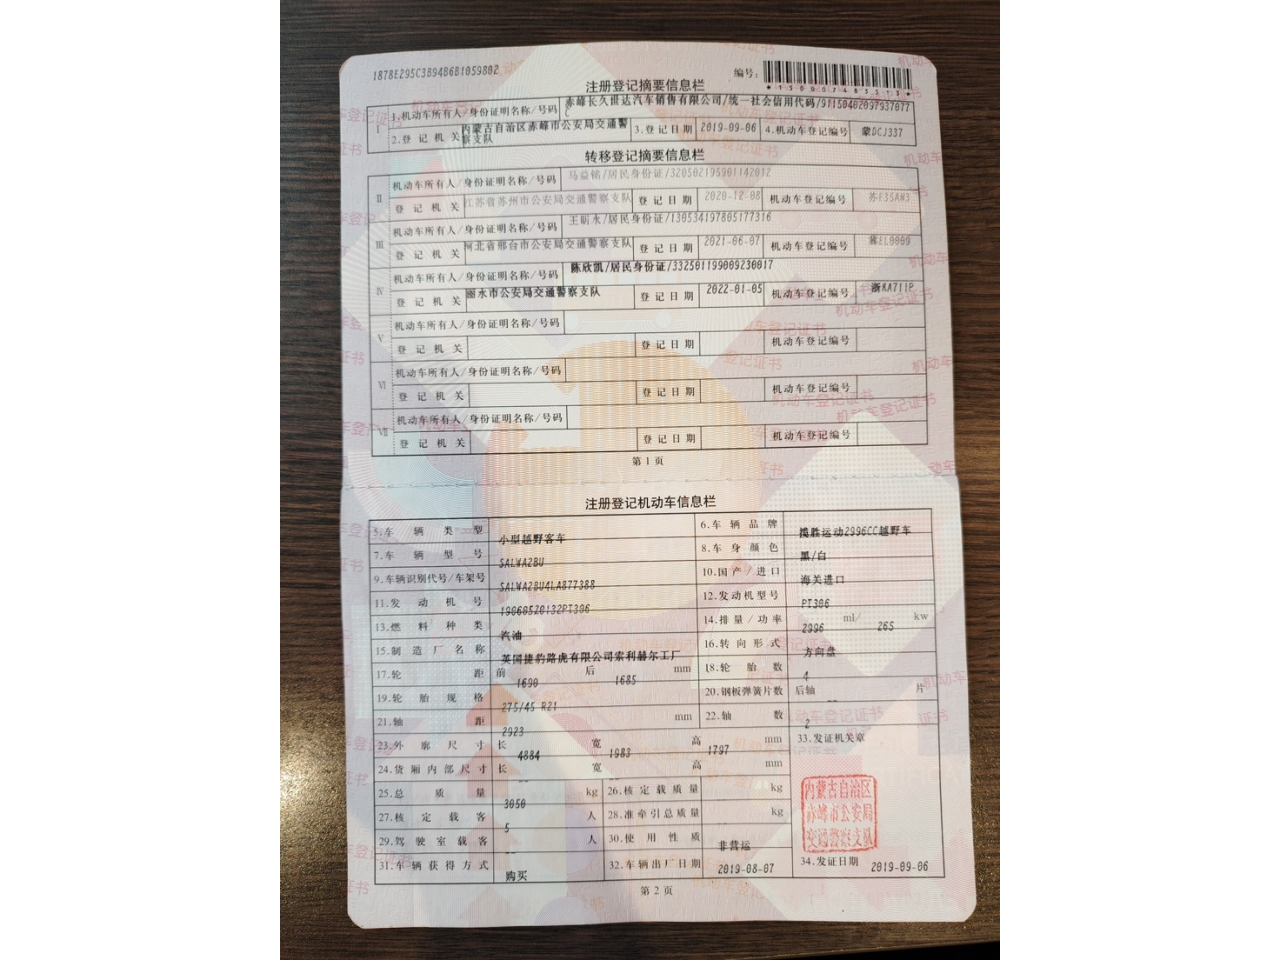 1878E295C3B94B6B1059802
编号:
*150007483513*
注册登记摘要信息栏
I 1.机动车所有人/身份证明名称/号码 赤峰长久世达汽车销售有限公司/统一社会信用代码/91150402097937077
C
2.登记机关 内蒙古自治区赤峰市公安局交通警察支队 3.登记日期 2019-09-06 4.机动车登记编号 蒙DCJ337
转移登记摘要信息栏
II 机动车所有人/身份证明名称/号码 马益铭/居民身份证/320502195901142012
登记机关 江苏省苏州市公安局交通警察支队 登记日期 2020-12-08 机动车登记编号 苏E35AW3
III 机动车所有人/身份证明名称/号码 王昕永/居民身份证/130534197805177316
登记机关 河北省邢台市公安局交通警察支队 登记日期 2021-06-07 机动车登记编号 冀EL0000
IV 机动车所有人/身份证明名称/号码 陈欣凯/居民身份证/332501199009230017
登记机关 丽水市公安局交通警察支队 登记日期 2022-01-05 机动车登记编号 浙KA711P
V 机动车所有人/身份证明名称/号码
登记机关 登记日期 机动车登记编号
VI 机动车所有人/身份证明名称/号码
登记机关 登记日期 机动车登记编号
VII 机动车所有人/身份证明名称/号码
登记机关 登记日期 机动车登记编号
第1页
注册登记机动车信息栏
5.车辆类型 小型越野客车 6.车辆品牌 揽胜运动2996CC越野车
7.车辆型号 SALWA2BU 8.车身颜色 黑/白
9.车辆识别代号/车架号 SALWA2BU4LA877388 10.国产/进口 海关进口
11.发动机号 190605Z0132PT306 12.发动机型号 PT306
13.燃料种类 汽油 14.排量/功率 2996 ml/ 265 kw
15.制造厂名称 英国捷豹路虎有限公司索利赫尔工厂 16.转向形式 方向盘
17.轮距 前 1690 后 1685 mm 18.轮胎数 4
19.轮胎规格 275/45 R21 20.钢板弹簧片数 后轴 -- 片
21.轴距 2923 mm 22.轴数 2
23.外廓尺寸 长 4884 宽 1983 高 1797 mm 33.发证机关章
24.货厢内部尺寸 长 -- 宽 -- 高 -- mm
25.总质量 3050 kg 26.核定载质量 kg
27.核定载客 5 人 28.准牵引总质量 kg
29.驾驶室载客 -- 人 30.使用性质 非营运
31.车辆获得方式 购买 32.车辆出厂日期 2019-08-07 34.发证日期 2019-09-06
内蒙古自治区
赤峰市公安局
交通警察支队
第2页